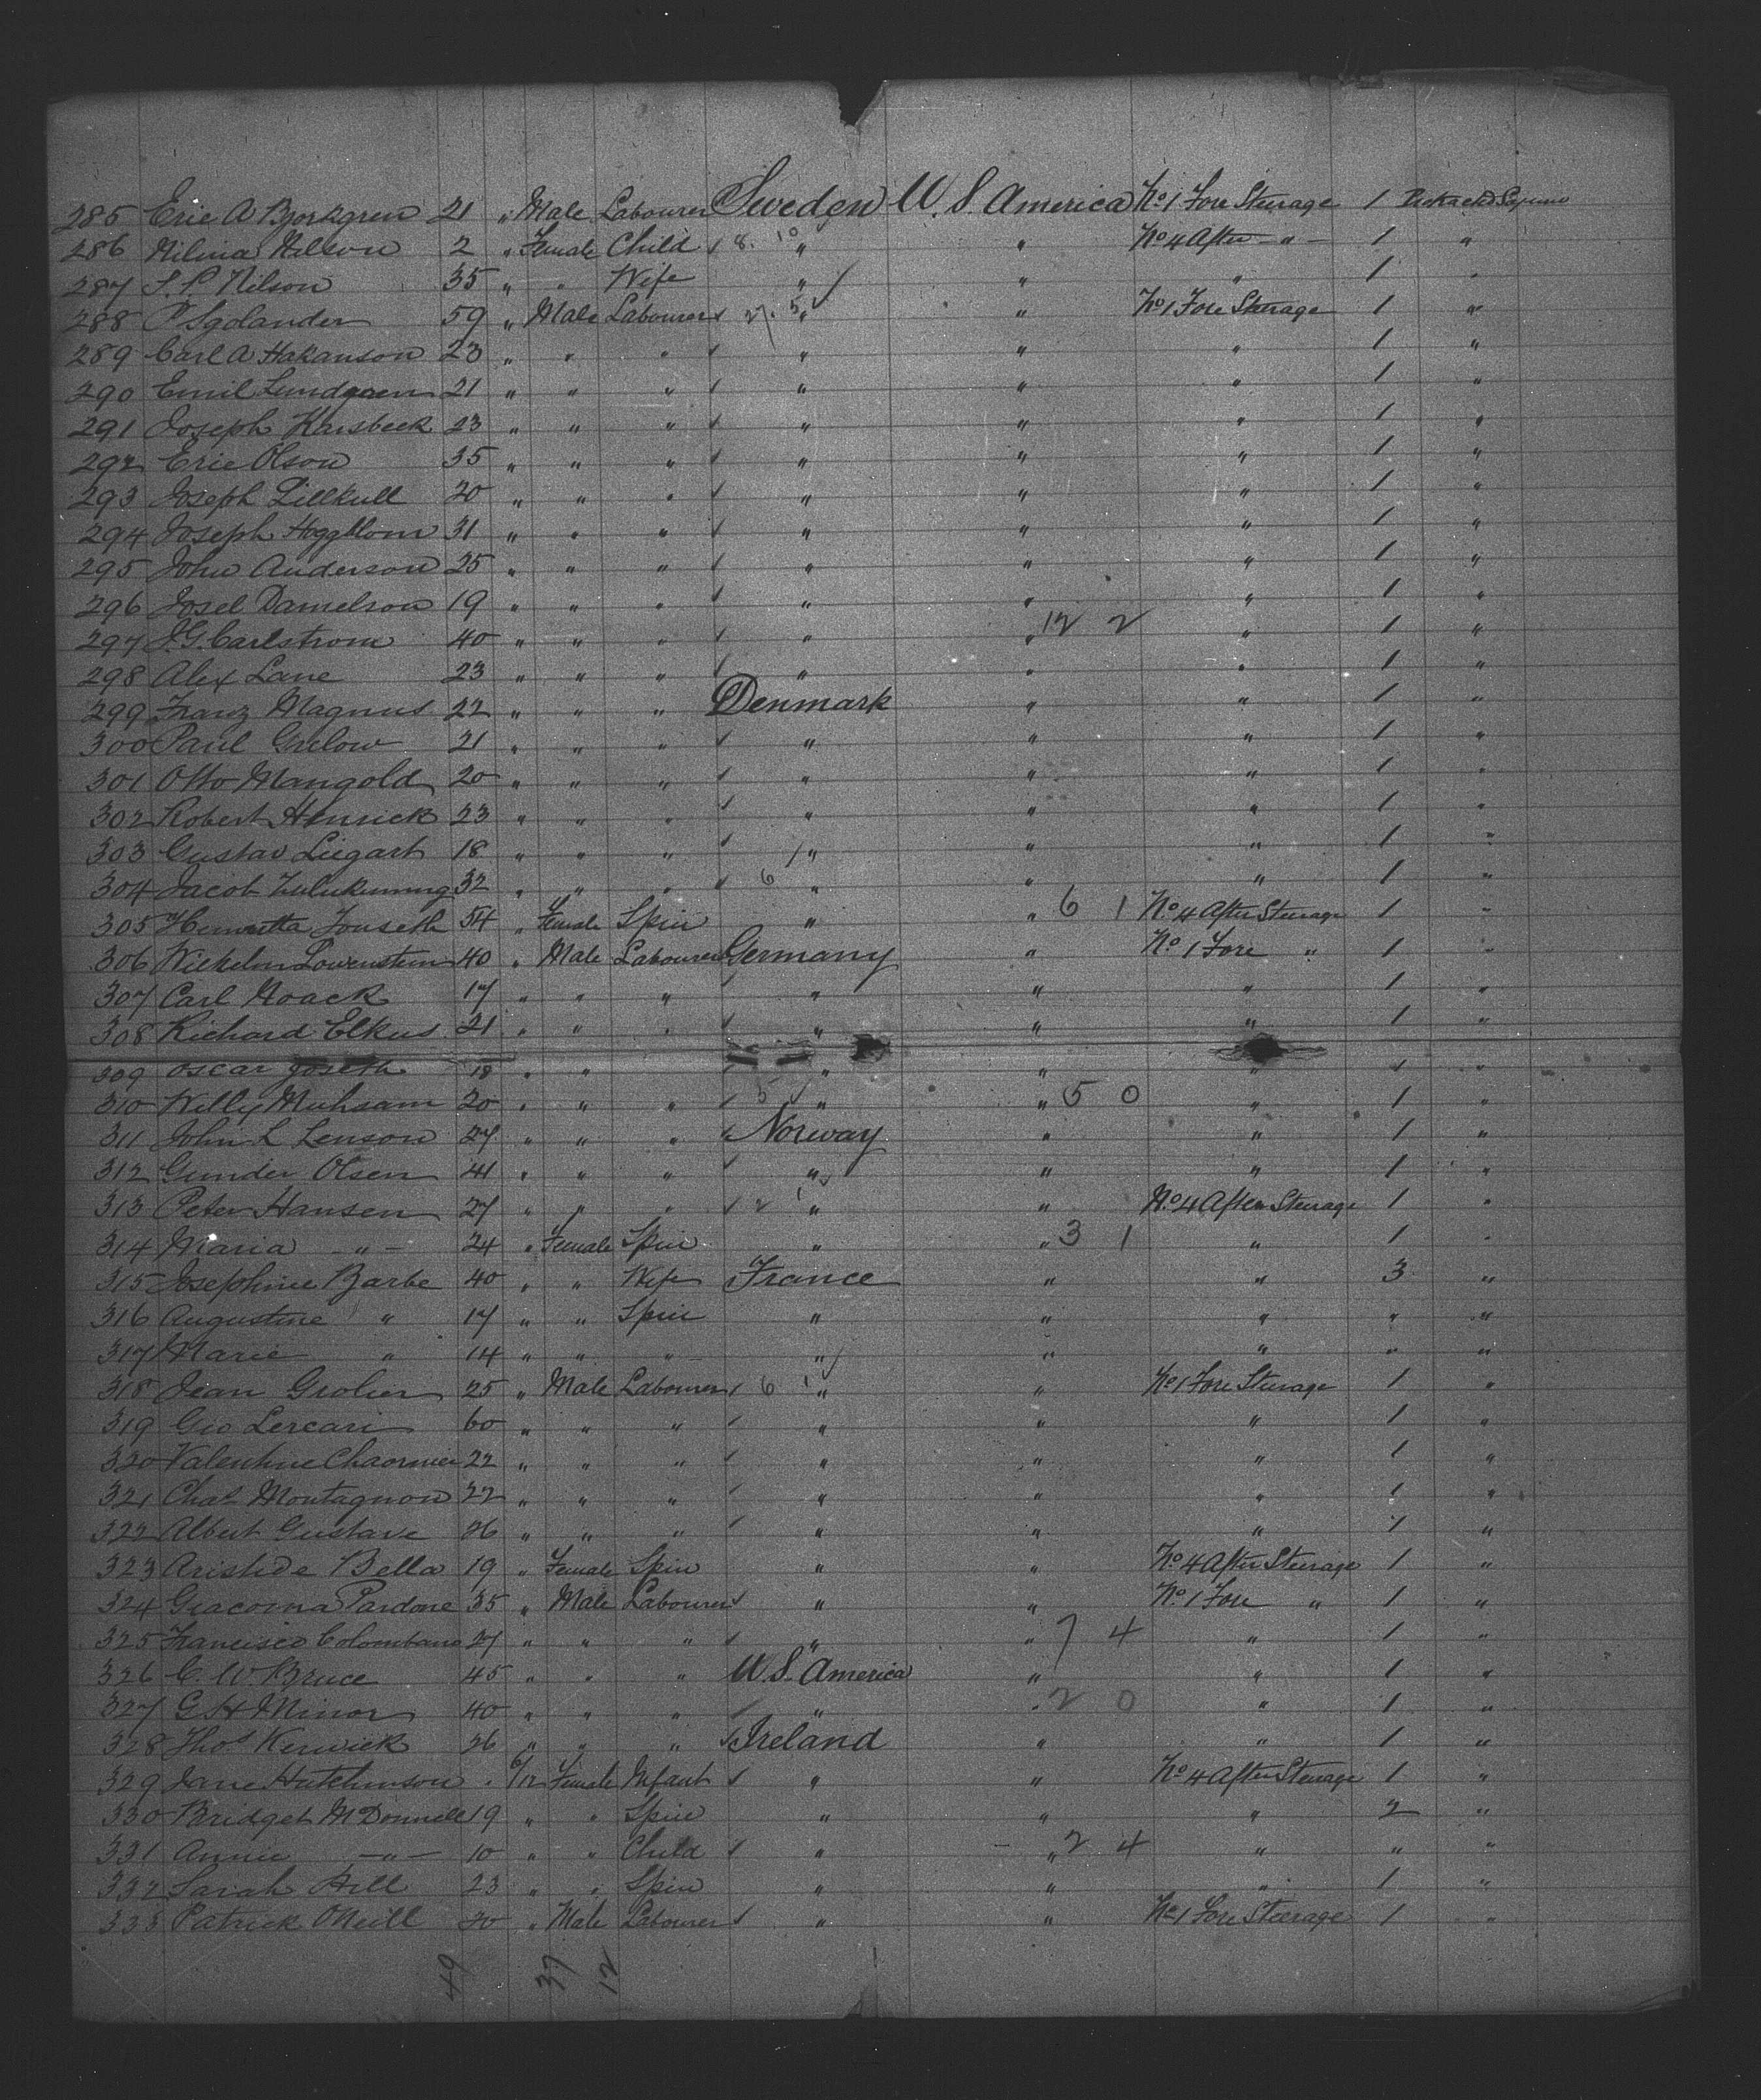 285 Eric A Bjorkgren 21 " Male Labourer Sweden U.S. America No 1 Fore Steerage 1
286 Hilma Nelson 2 " Female Child 8. 10 " " No 4 After - " - 1 "
287 S. P. Nilson 35 " " Wife " " " 1 "
288 P Sgolander 59 " Male Labourer 7. 5 " " No 1 Fore Steerage 1 "
289 Carl A Hakanson 23 " " " " " " 1 "
290 Emil Lundgren 21 " " " " " " 1 "
291 Joseph Karsbeck 23 " " " " " " 1 "
292 Eric Olson 35 " " " " " " 1 "
293 Joseph Lillkull 20 " " " " " " 1 "
294 Joseph Hoggblom 31 " " " " " " 1 "
295 John Anderson 25 " " " " " " 1 "
296 Josel Danielson 19 " " " " " " 1 "
297 J.G. Carlstrom 40 " " " " " 12 2 " 1 "
298 Alex Lane 23 " " " " " " 1 "
299 Franz Magnus 22 " " " Denmark " " 1 "
300 Paul Grelow 21 " " " " " " 1 "
301 Otto Mangold 20 " " " " " " 1 "
302 Robert Henrick 23 " " " " " " 1 "
303 Gustav Liegart 18 " " " " " " 1 "
304 Jacob 32 " " " 6 " " " 1 "
305 Henrietta Jouseth 54 " Female Spin " " 6 1 No. 4 After Steerage 1 "
306 Wilhelm Lowenstein 40 " Male Labourer Germany " No. 1 Fore " 1 "
307 Carl Noack 17 " " " " " " 1 "
308 Richard Elkus 21 " " " " " " 1 "
309 Oscar Joseth 18 " " " " " 1 "
310 Willy Muhsam 20 " " " 5 " " 5 0 " 1 "
311 John L Lenson 27 " " " Norway " " 1 "
312 Gunder Olsen 41 " " " " " " 1 "
313 Peter Hansen 27 " " " 2 1 " " No. 4 After Steerage 1 "
314 Maria - " - 24 " Female Spin " " 3 1 " 1 "
315 Josephine Barbe 40 " " Wife France " " 3 "
316 Augustine " 17 " " Spin " " " " "
317 Marie " 14 " " " " " " " "
318 Jean Grolier 25 " Male Labourer 6 1 " " No 1 Fore Steerage 1 "
319 Gio Lercari 60 " " " " " " 1 "
320 Valentine 22 " " " " " " 1 "
321 Chas Montagnon 22 " " " " " " 1 "
322 Albert Gustave 26 " " " " " " 1 "
323 Aristide Bella 19 " Female Spin " " No. 4 After Steerage 1 "
324 Giacoma Pardone 35 " Male Labourer " " No. 1 Fore " 1 "
325 Francisco Colombano 27 " " " " " 7 4 " 1 "
326 C. W. Bruce 45 " " " U.S. America " " 1 "
327 G H Minor 40 " " " " " 2 0 " 1 "
328 Thos Kerwick 26 " " " Ireland " " 1 "
329 Jane Hutchinson " 6/12 Female Infant " " No 4 After Steerage 1 "
330 Bridget McDonnell 19 " " Spin " " " 2 "
331 Annie - " - 10 " " Child " " 2 4 " " "
332 Sarah Hill 23 " " Spin " " " 1 "
333 Patrick ONeill 20 " Male Labourer " " No 1 Fore Steerage 1 "
49 37 12